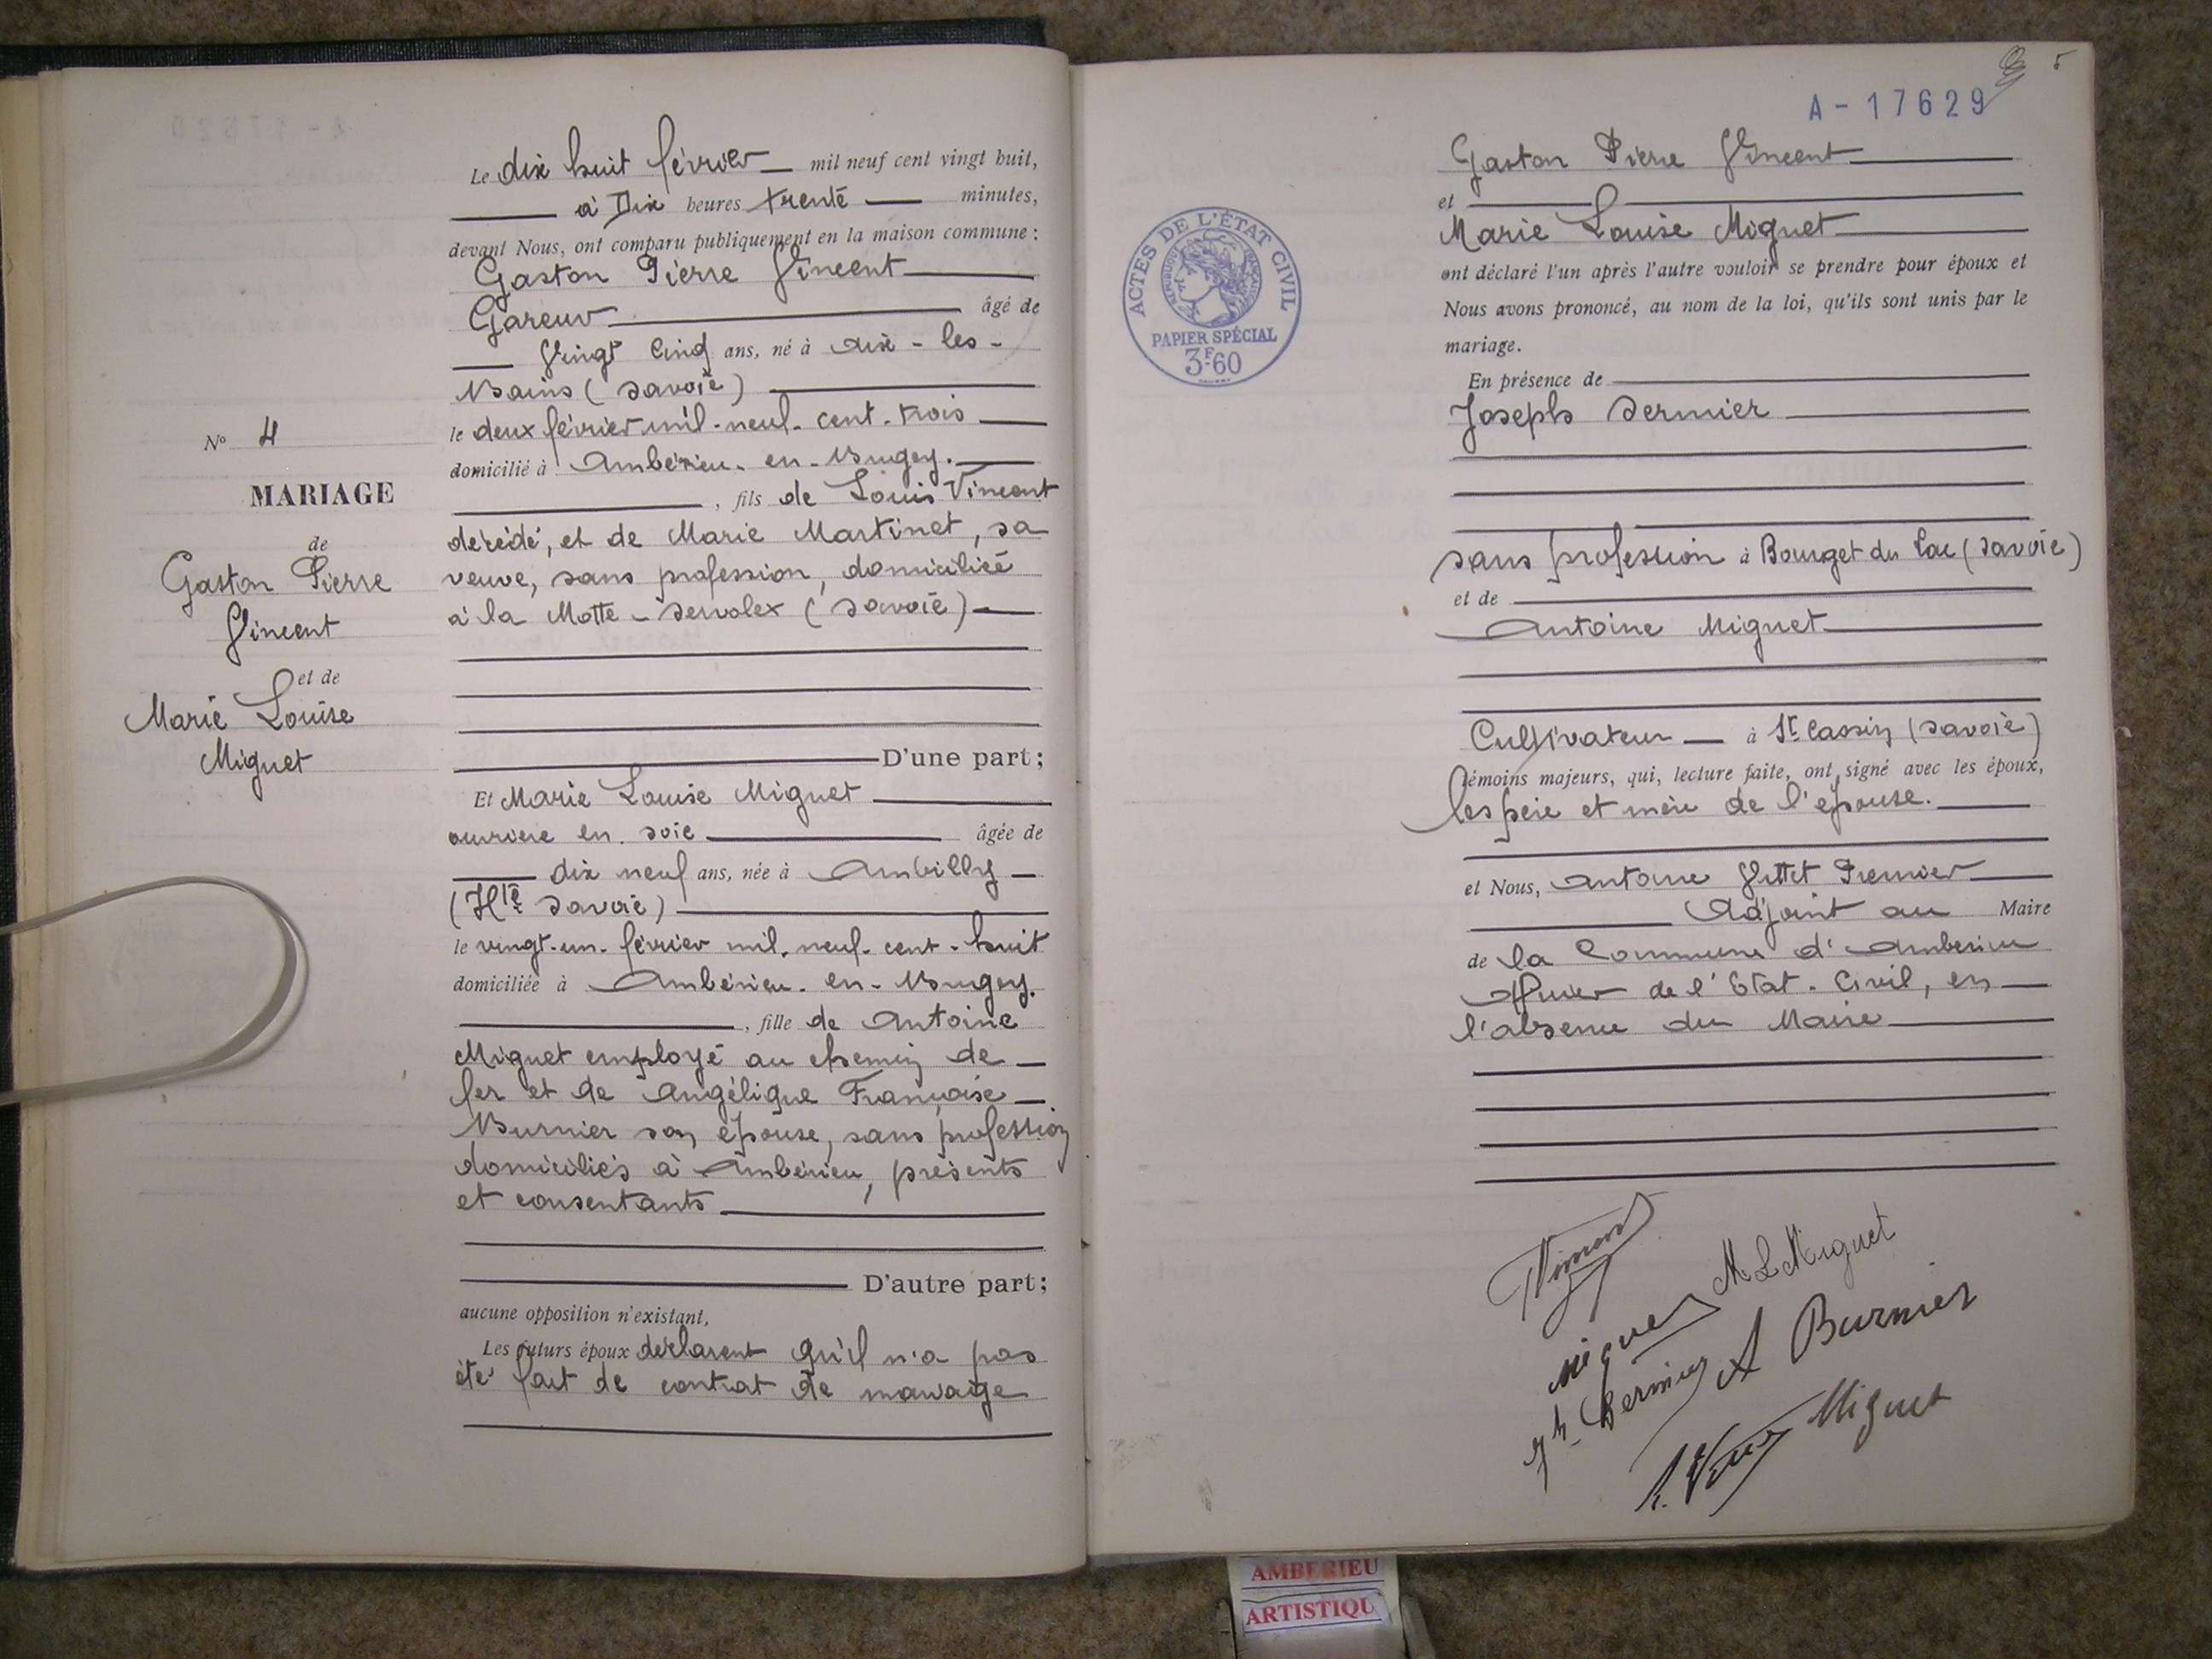 Le dix huit février mil neuf cent vingt huit,
à Dix heures trente minutes,
devant Nous, ont comparu publiquement en la maison commune :
Gaston Pierre Vincent
Gareur âgé de
Vingt Cinq ans, né à Aix - les -
Bains (Savoie)
le deux février mil - neuf - cent - trois
domicilié à Ambérieu - en - Bugey.
, fils de Louis Vincent
décédé, et de Marie Martinet, sa
veuve, sans profession, domiciliée
à la Motte - Servolex (Savoie)
D'une part ;
Et Marie Louise Miguet
ouvrière en soie âgée de
dix neuf ans, née à Ambilly
(Hte Savoie)
le vingt - un - février mil - neuf - cent - huit
domiciliée à Ambérieu - en - Bugey.
, fille de Antoine
Miguet employé au chemin de
fer et de Angélique Françoise
Burnier son épouse, sans profession
domiciliés à Ambérieu, présents
et consentants
D'autre part ;
aucune opposition n'existant,
Les futurs époux déclarent qu'il n'a pas
été fait de contrat de mariage
N° 4
MARIAGE
de
Gaston Pierre
Vincent
et de
Marie Louise
Miguet
5
A - 17629
ACTES DE L'ÉTAT CIVIL
RÉPUBLIQUE FRANÇAISE
PAPIER SPÉCIAL
3F60
Gaston Pierre Vincent
et
Marie Louise Miguet
ont déclaré l'un après l'autre vouloir se prendre pour époux et
Nous avons prononcé, au nom de la loi, qu'ils sont unis par le
mariage.
En présence de
Joseph Dermier
sans profession à Bourget du Lac (Savoie)
et de
Antoine Miguet
Cultivateur à St Cassin (Savoie)
témoins majeurs, qui, lecture faite, ont signé avec les époux,
les père et mère de l'épouse.
et Nous, Antoine Premier
Adjoint au Maire
de la Commune d'Ambérieu
Officier de l'Etat - Civil, en
l'absence du Maire
Vincent
M L Miguet
Miguet
A Burnier
Miguet
AMBERIEU
ARTISTIQU